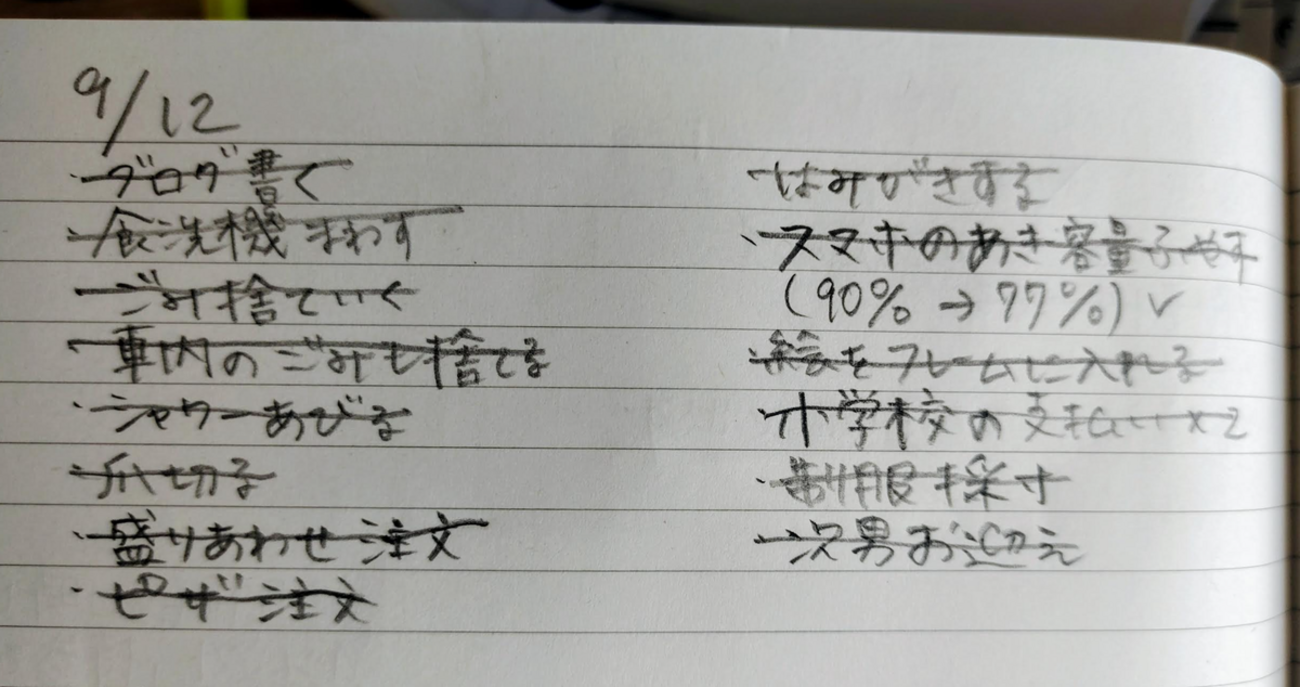 9/12
・ブログ書く
・食洗機まわす
・ごみ捨ていく
・車内のごみも捨てる
・シャワーあびる
・爪切る
・盛りあわせ注文
・ピザ注文
・はみがきする
・スマホのあき容量ふやす
(90% → 77%) ✓
・絵をフレームに入れる
・小学校の支払い×2
・制服採寸
・次男お迎え